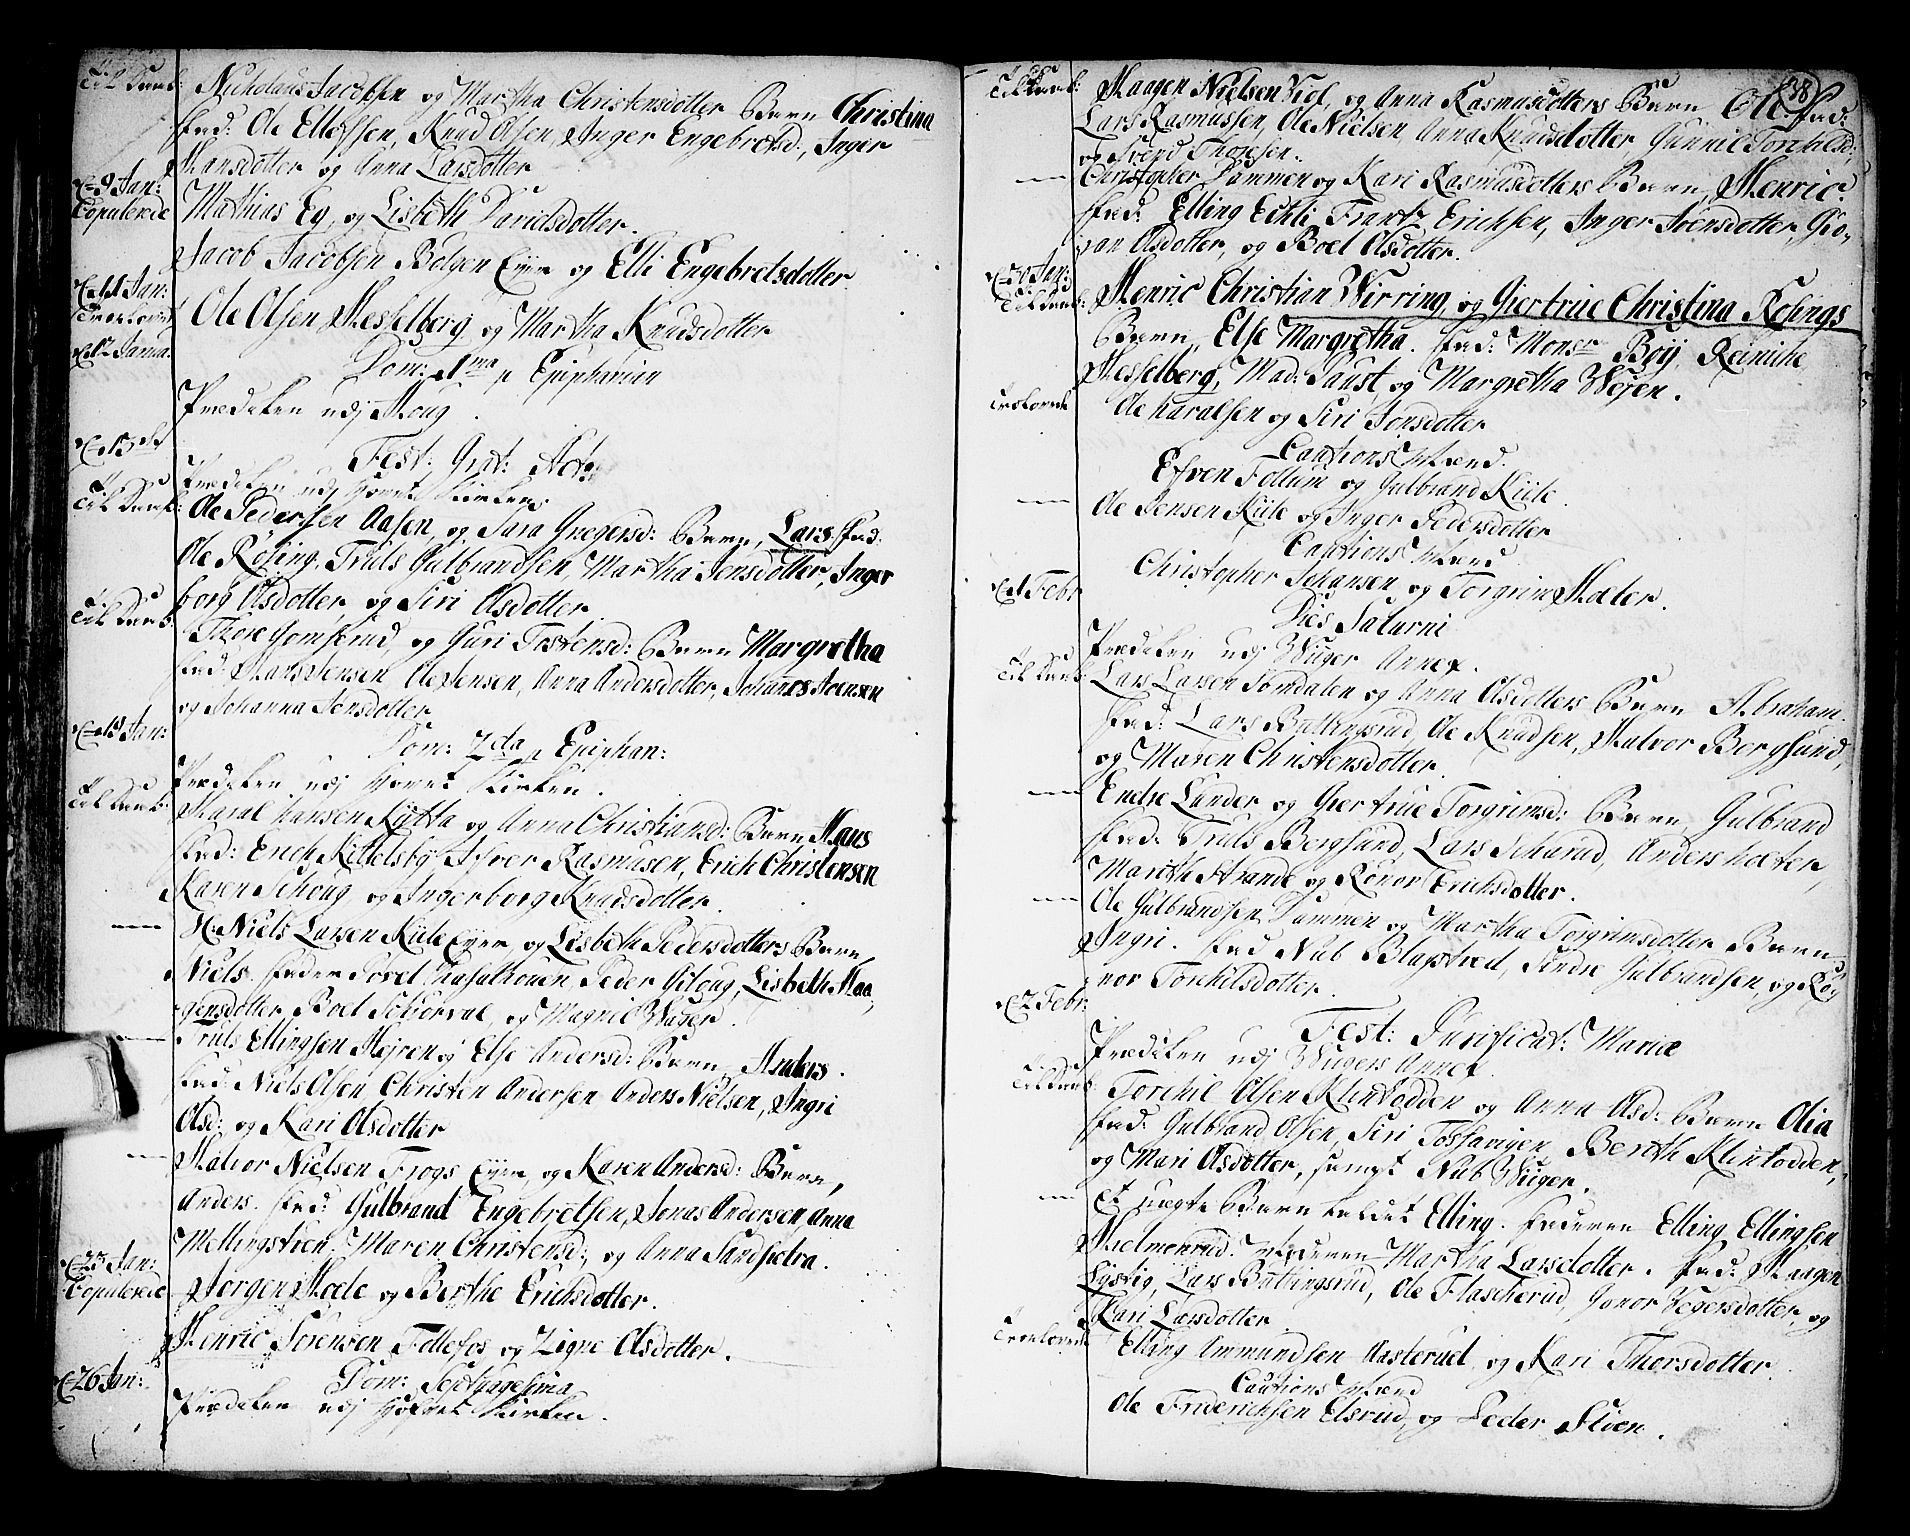 Til Daab: Nicholaus Jacobsen og Martha Christensdotter Barn Christina
Fad: Ole Ellefssen, Knud Olsen, Inger Engebretsd:, Inger
Hansdotter og Anna Larsdotter
9 Jan: Mathias Eg, og Lisbeth Davidsdotter.
Copulerede
Jacob Jacobsen Bølgen Eyer og Elli Engebretsdotter
11 Jan: Ole Olsen Hesselberg og Martha Knudsdotter
Trolovet
Dom: 1ma p Epiphanian
Prædiken udj Houg.
13 Fest: Grat: Act:
Prædiken udj Hovet Kirken.
Til Daab: Ole Pederssen Aasen, og Sara Gregersd: Barn, Lars. Fad:
Ole Røsing, Truls Gulbrandsen, Martha Jensdotter, Inger
borg Olsdotter og Siri Olsdotter.
Til Daab: Thore Gomserud, og Guri Tostensd: Barn Margretha
Fad: Hans Jensen Ole Jensen, Anna Andersdotter, Johannes Joensen
og Johanna Jonsdotter
Jan: Dom: 2da p Epiphan:
Prædiken udj Hovet Kirken.
Til Daab: Haral Hansen Rytta og Anna Christiansd: Barn Hans
Fad: Erich Kittelsby, Ifver Rasmusen, Erich Christensen
Karen Schoug og Ingerborg Knudsdotter.
H: Niels Larsen Kiile Eyer og Lisbeth Pedersdotters Barn
Niels. Fadere Povel Peder Houg, Lisbeth Haa,
gensdotter Boel og Magnil Wager.
Truls Ellingsen Hejren og Else Andersd: Barn, Anders.
Fad: Niels Olsen, Christen Andersen Anders Nielsen, Ingri
Olsd: og Kari Olsdotter
Halvor Nielsen Frogs Eyer og Karen Andersd: Barn,
Anders. Fad: Gulbrand Engebretsen, Jonas Andersen, Anna
Mellingstien, Maren Christensd: og Anna Sandsætra.
Jan: Jørgen Moele og Berthe Erichsdotter.
Copulerede
Henric Sørensen Follefos og Zigne Olsdotter.
26 Jan: Dom: Septuagesima
Prædiken udj Hovet Kirken.
38
Til Daab: Haagen Nielsen Viol, og Anna Rasmusdotters Barn Ole. Fad:
Lars Rasmussen, Ole Nielsen, Anna Knudsdotter, Gunnil Torchilsd:
og Svend Thoresen.
Christopher Dammen og Kari Rasmusdotters Barn, Henric.
Fad: Elling Echli Frantz Erichsen, Inger Joensdotter, Gio,
ran Olsdotter, og Boel Olsdotter.
30 Jan: Henric Christian Wirring, og Giertrue Christina Kobngs
Til Daab: Barn, Else Margretha. Fad: Monsr Boij, Reiniche
Hesselberg, Mad: Faust, og Margretha Wejen.
Trolovede Ole Haralsen og Siri Jonsdotter
Cautions Mænd.
Efven Follum og Gulbrand Kiile.
Ole Jensen Kiile og Inger Pedersdotter
Cautions Mænd
Christopher Johansen og Torgrim Moeler.
1 Febr Dies Saturni
Prædiken udj Wiger Annex.
Til Daab: Lars Larsen Somdalen og Anna Olsdotters Barn Abraham.
Fad: Lars Battingsrud, Ole Knudsen, Halvor Borgsund,
og Maren Christensdotter.
Endre Lunder og Giertrue Torgrimsd: Barn, Gulbrand
Fad: Truls Bergsund, Lars Scharud, Anders
Marithe Strande og Rønor Erichsdotter.
Ole Gulbrandsen Dammen og Martha Torgrimsdotter Barn,
Ingri. Fad Nub Blagstved, Endre Gulbrandsen, og Rø,
nor Torchilsdotter.
2 Febr: Fest: Purificat: Mariæ
Prædiken udj Wigers Annex.
Til Daab: Torchil Olsen Klintodden og Anna Olsd: Barn Olia
Fad: Gulbrand Olsen, Siri Tossavigen Berith Klintodden,
og Mari Olsdotter, sampt Nub Wiger.
Et uægte Barn kaldet Elling. Faderen Elling Ellingsen
Hielmenrud. Moderen Martha Larsdotter. Fad: Haagen
Lystig, Lars Battingsrud, Ole Flascherud, Gonor Vegersdotter, og
Kari Larsdotter.
Trolovede Elling Ammundsen Aasterud og Kari Thorsdotter.
Cautions Mænd
Ole Friderichsen Elsrud, og Peder Steen.